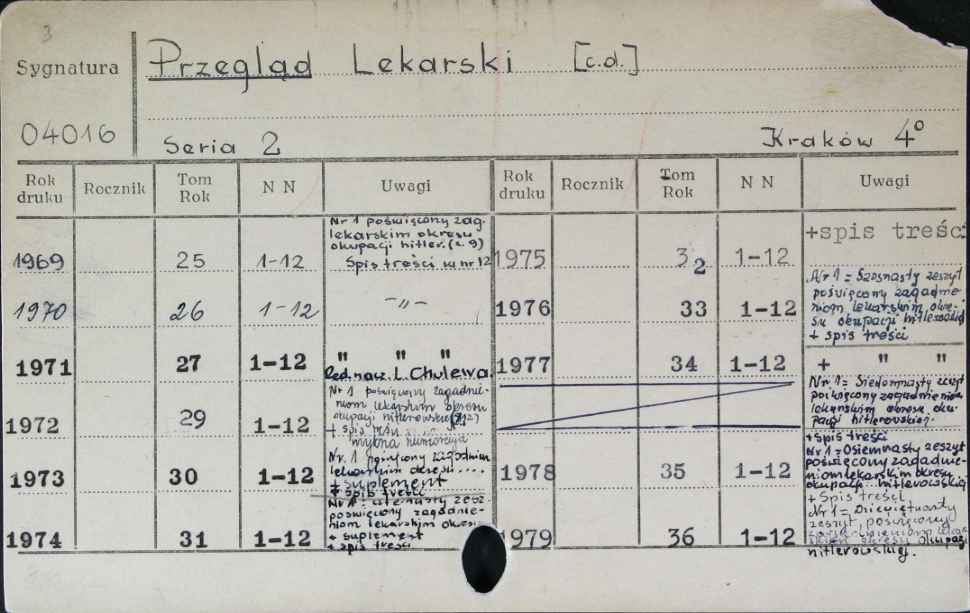 3
Sygnatura
04016
Przegląd Lekarski [c.d.]
Seria 2 Kraków 4°
Rok druku Rocznik Tom Rok N N Uwagi Rok druku Rocznik Tom Rok N N Uwagi
1969 25 1-12
Nr 1 poświęcony zag.
lekarskim okresu
okupacji hitler. (z. 9)
Spis treści w nr 12
1970 26 1-12 -"-
1971 27 1-12 " " "
Red. nacz. L. Chulewa.
1972 29 1-12
Nr 1 poświęcony zagadnie-
niom lekarskim okresu
okupacji hitlerowskiej
+ spis treści
mylna numeracja
1973 30 1-12
Nr. 1 poświęcony zagadnim
lekarskim okresu ....
+ suplement
+ spis treści
1974 31 1-12
Nr 1 = zesz.
poświęcony zagadnie-
niom lekarskim okresu
+ suplement
+ spis treści
1975 32 1-12 +spis treści
1976 33 1-12
Nr 1 = Szesnasty zeszyt
poświęcony zagadnie-
niom lekarskim okre-
su okupacji hitlerowskiej
+ spis treści
1977 34 1-12 + " "
Nr 1 = Siedemnasty zeszyt
poświęcony zagadnieniom
lekarskim okresu oku-
pacji hitlerowskiej
1978 35 1-12
+spis treści
Nr 1 = Osiemnasty zeszyt
poświęcony zagadnie-
niom lekarskim okresu
okupacji hitlerowskiej
+ Spis treści
1979 36 1-12
Nr 1 = Dziewiętnasty
zeszyt, poświęcony
zagadnieniom lekar-
skim okresu okupacji
hitlerowskiej.